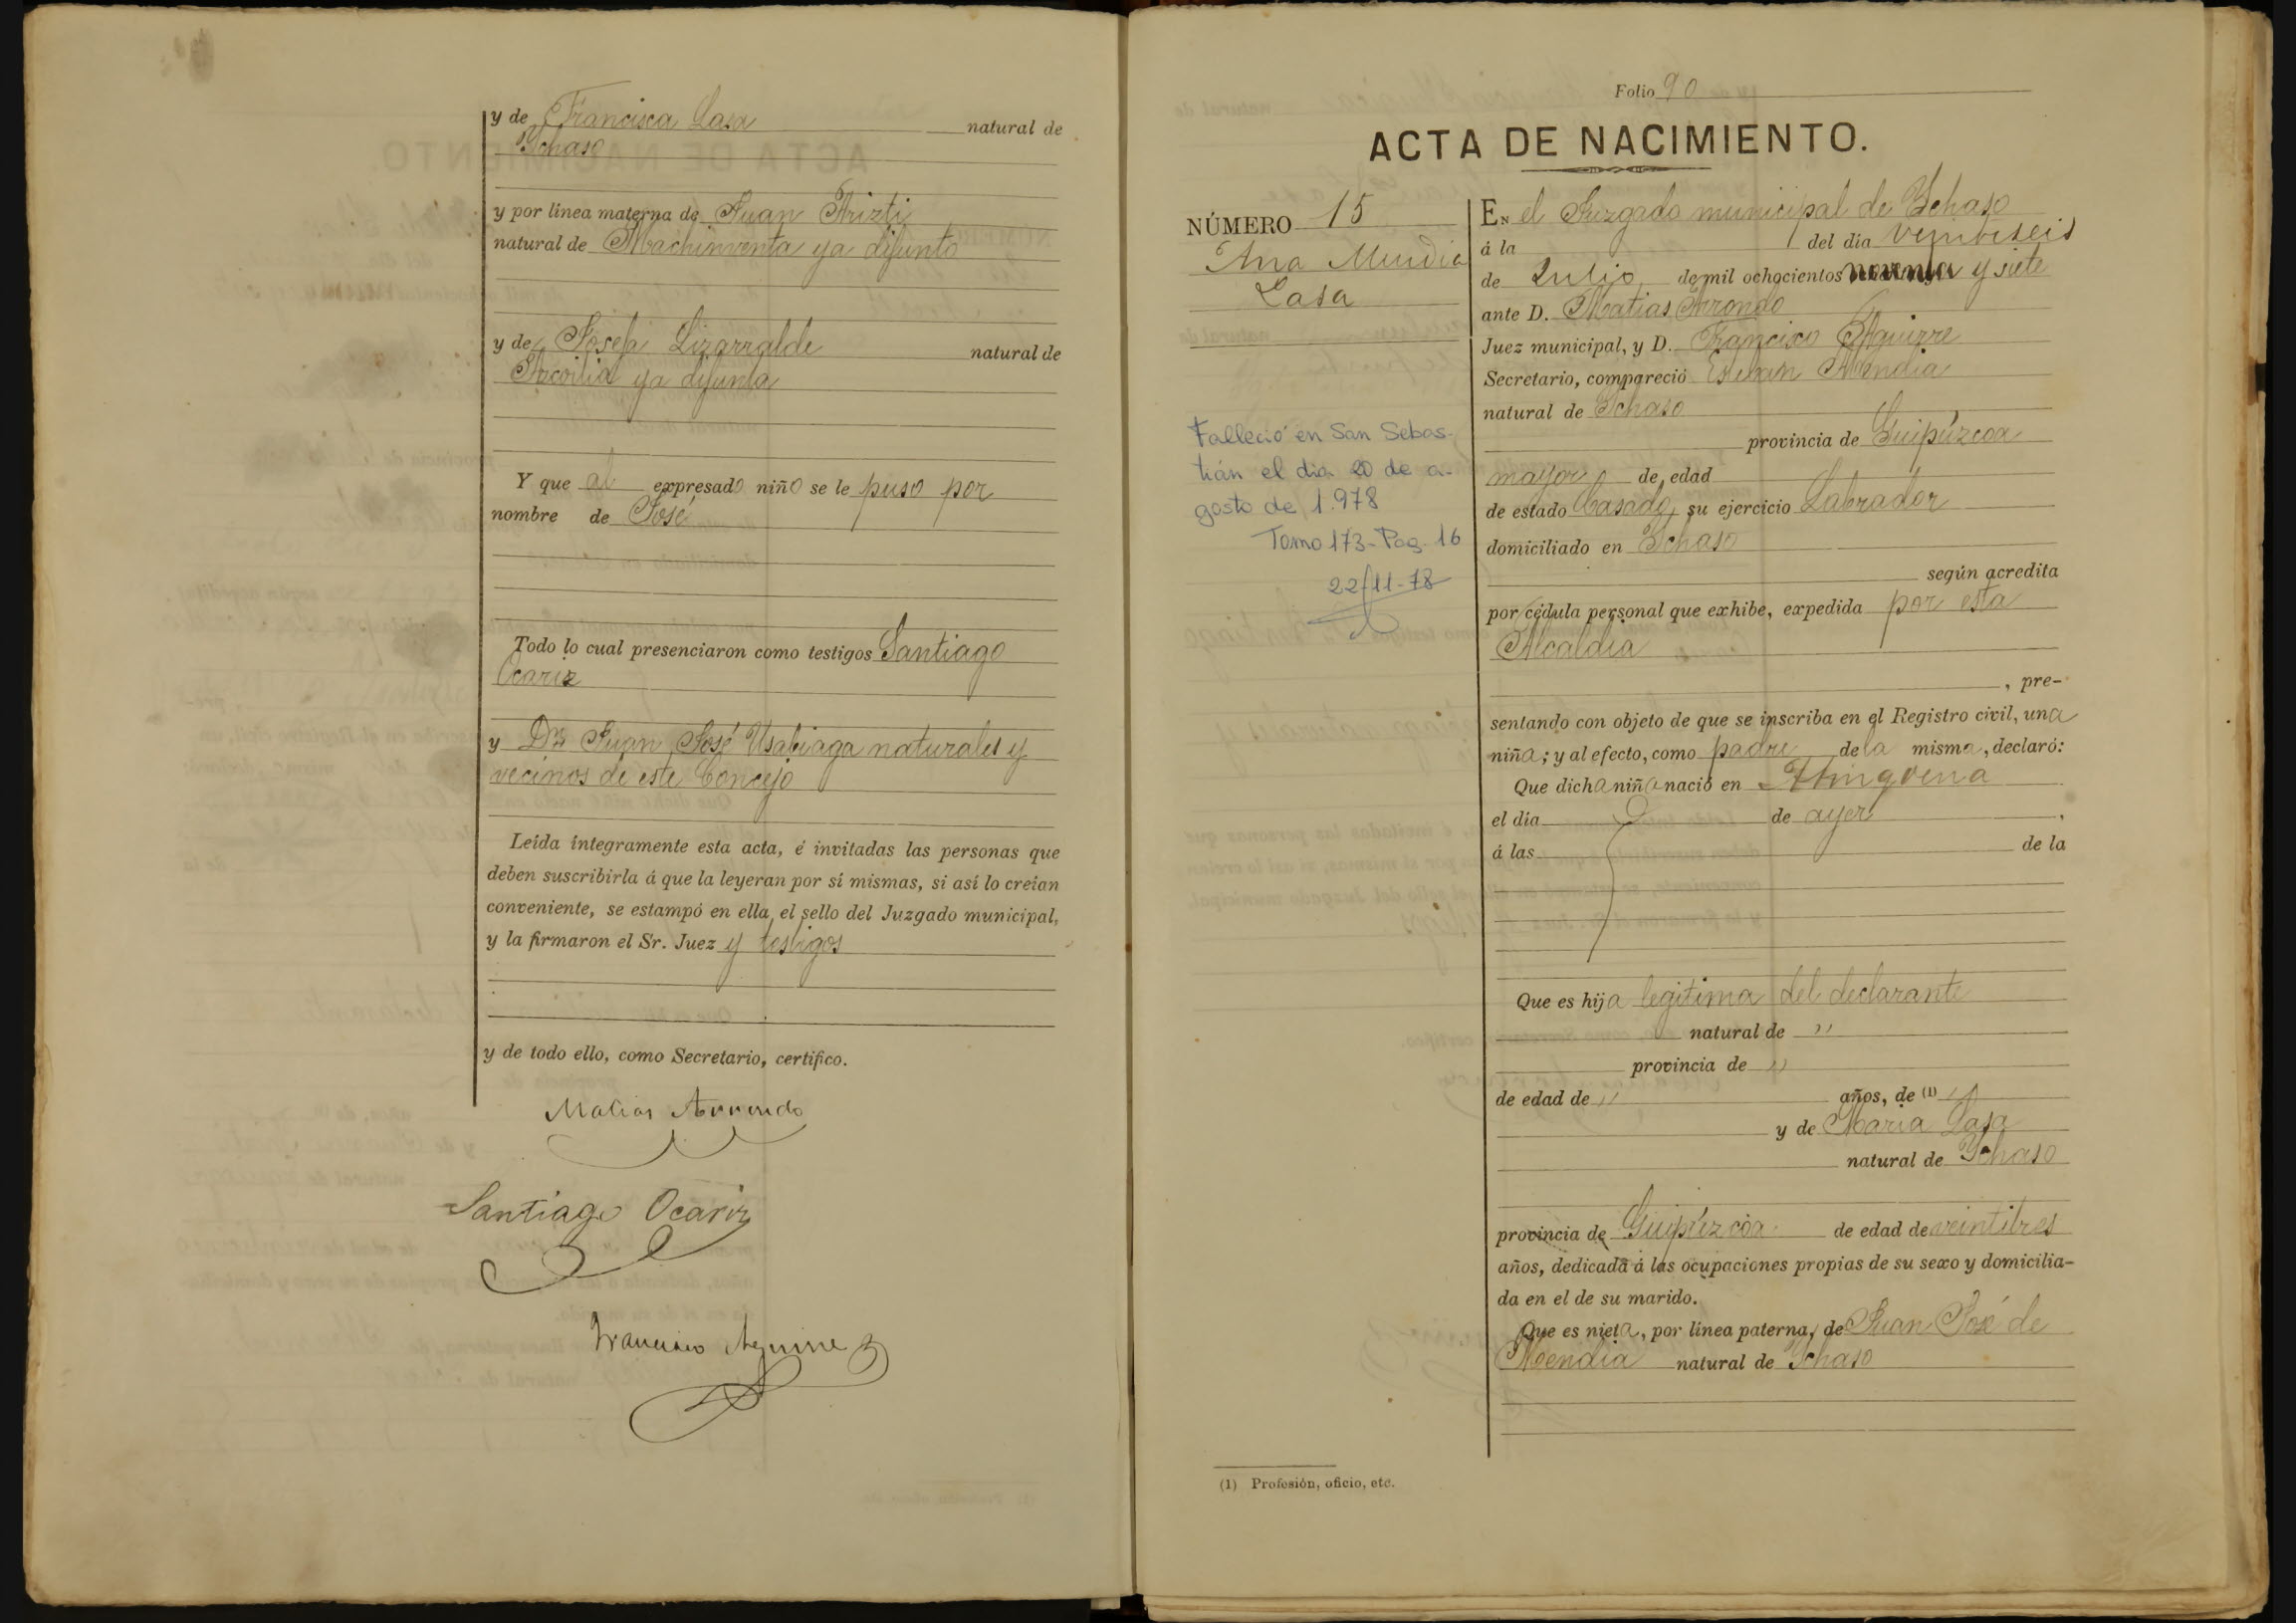 y de Francisca Lasa natural de
Ychaso
y por línea materna de Juan Arizti
natural de Machinventa ya difunto
y de Josefa Lizarralde natural de
Azcoitia ya difunta
Y que al expresado niño se le puso por
nombre de José
Todo lo cual presenciaron como testigos Santiago
Ocariz
y Dn Juan José Usabiaga naturales y
vecinos de este Concejo
Leída íntegramente esta acta, é invitadas las personas que
deben suscribirla á que la leyeran por sí mismas, si así lo creían
conveniente, se estampó en ella el sello del Juzgado municipal,
y la firmaron el Sr. Juez y testigos
y de todo ello, como Secretario, certifico.
Matias Arrondo
Santiago Ocariz
Francisco Aguirre
Folio 90
ACTA DE NACIMIENTO.
NÚMERO 15
Ana Mendia
Lasa
Falleció en San Sebas-
tián el dia 20 de a-
gosto de 1.978
Tomo 173-Pag. 16
22-11-78
EN el Juzgado municipal de Ychaso
á la del día veintiseis
de Julio de mil ochocientos noventa y siete
ante D. Matias Arrondo
Juez municipal, y D. Francisco Aguirre
Secretario, compareció Esteban Mendia
natural de Ychaso
provincia de Guipúzcoa
mayor de edad
de estado Casado, su ejercicio Labrador
domiciliado en Ychaso
según acredita
por cédula personal que exhibe, expedida por esta
Alcaldia
, pre-
sentando con objeto de que se inscriba en el Registro civil, una
niña; y al efecto, como padre de la misma, declaró:
Que dicha niña nació en
el día de ayer,
á las de la
Que es hija legitima del declarante
natural de "
provincia de "
de edad de " años, de (1) "
y de Maria Lasa
natural de Ychaso
provincia de Guipúzcoa de edad de veintitres
años, dedicada á las ocupaciones propias de su sexo y domicilia-
da en el de su marido.
Que es nieta, por línea paterna, de Juan José de
Mendia natural de Ychaso
(1) Profesión, oficio, etc.